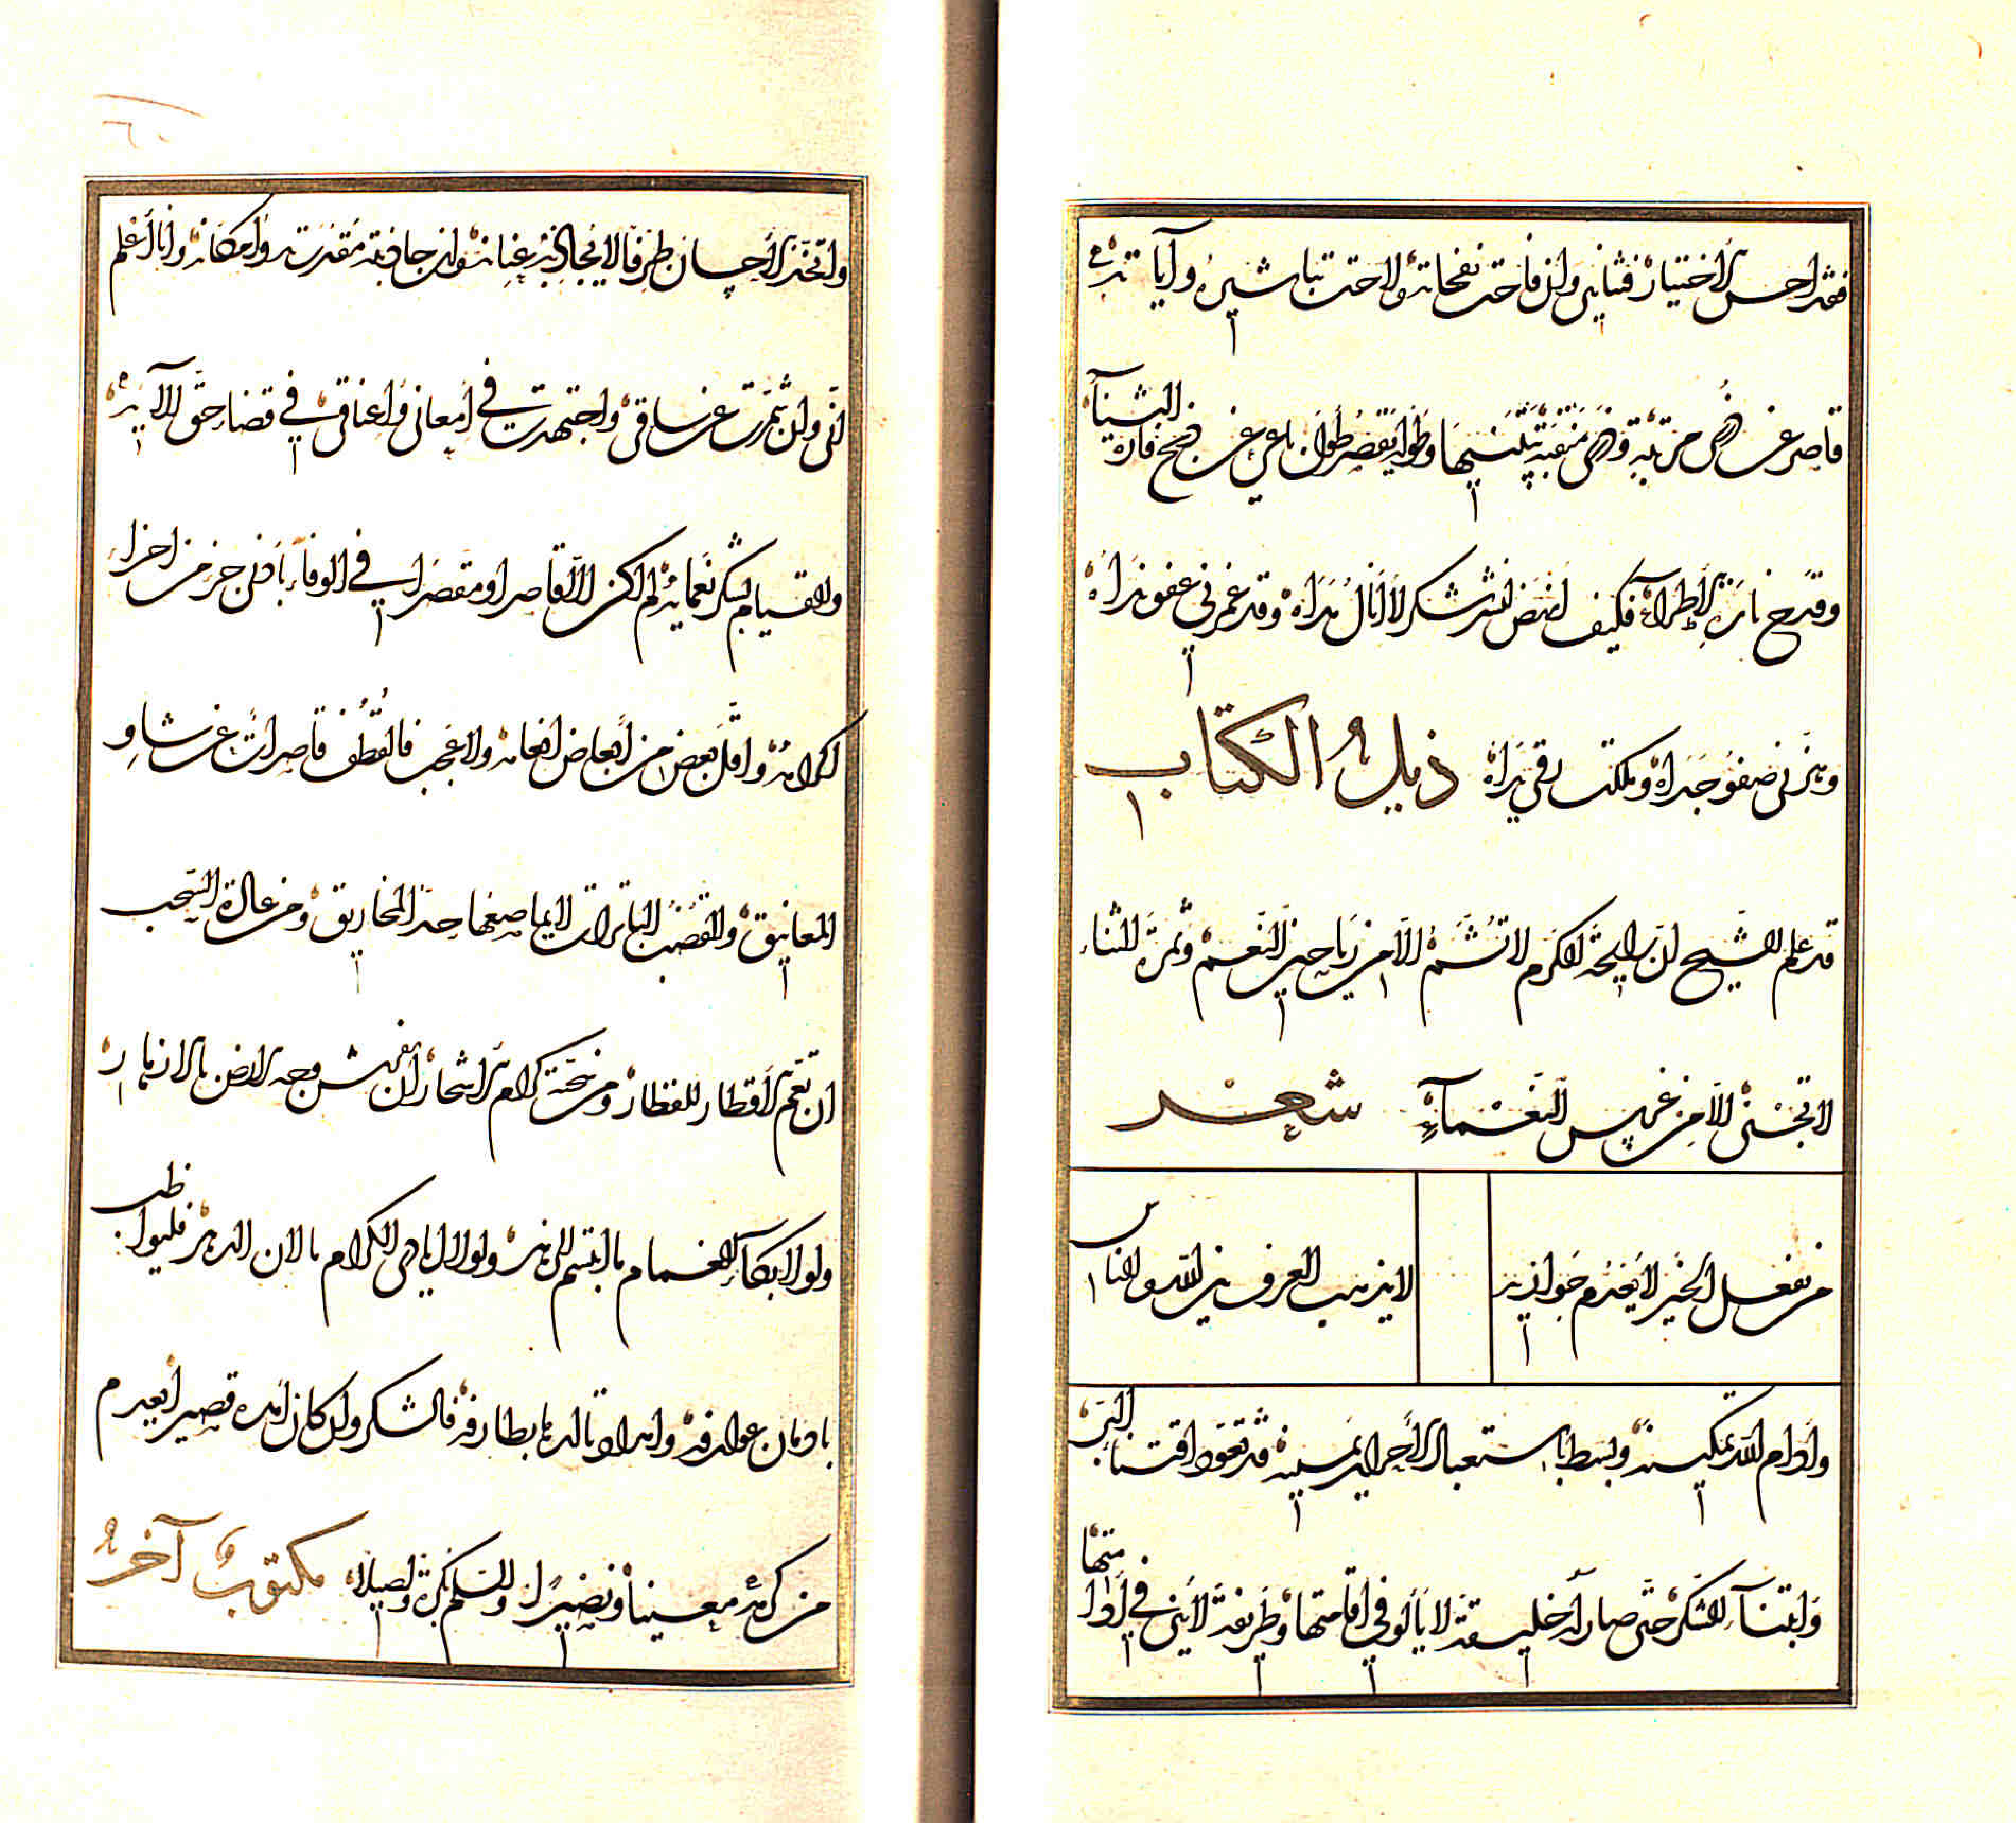 فقد احسن الاختيار فثنائي وان فاحت نفحاته ولاحت تباشيره وآياته
قاصر عن مرتبة ومنقبة وطول يقصر طول باعي عن فتح قارة الثناء
وقدح نار الاطراء فكيف انتشر لشكر لا انال مداه وقد غمرني عفو نداه
وهزني صفو جداه وملكت رقي يداه ذيل الكتاب
قد علم الشيخ ان رايحة الكرم لا تشم الا من رياحين النعم وثمرة الثناء
لا تجنى الا من غرس النعماء شعر
من يفعل الخير لا يعدم جوازيه لا يذهب العرف بين الله والناس
وادام الله تمكينه وبسط باستعباد الاحرار يمينه قد تعود اقتناء البر
وابتناء الشكر حتى صارا له خليقة لا يألو في اقامتها وطريقة لا يني في ادامتها
واتخذ الاحسان طرفا لا يجاذبه عنانه وان جاذبته مقدرته وامكانه وانا اعلم
اني وان شمرت عن ساقي واجتهدت في امعاني واعناقي في قضاء حق آلائه
والقيام بشكر نعمائه لم اكن الا قاصرا ومقصرا في الوفاء بادنى جزء من اجزاء
اكرامه واقل بعض من ابعاض انعامه ولا عجب فالقطف قاصرات عن شأو
المعانيق والقضب الباترات لا يماصعها حد المخاريق ومن عادة السحب
ان تعم الاقطار بالقطار ومن كرام الاشجار ان يفرش وجه الارض بالازهار
ولولا بكاء الغمام ما ابتسم الزهر ولولا ايادي الكرام ما لان الدهر فليواظب
بادمان عوارفه وامداد تالدها بطارفه فالشكر وان كان امده قصيرا يعدم
من كرمه معينا ونصيرا والسلم بكرة واصيلا مكتوب آخر